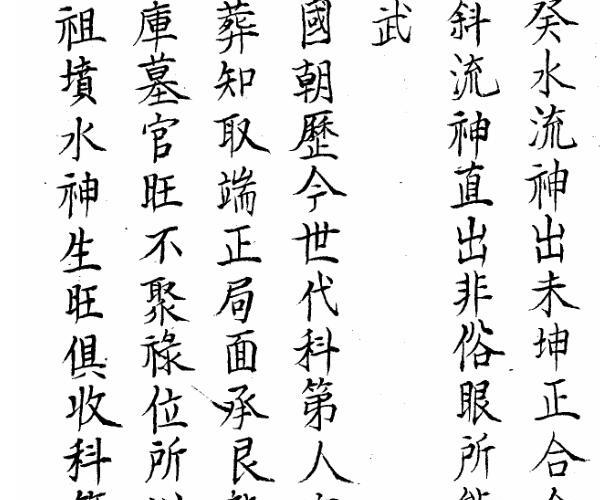 癸水流神出未坤正合
斜流神直出非俗眼所
武
國朝歷今世代科第人
葬知取端正局面承艮
庫墓官旺不聚祿位所
祖墳水神生旺俱收科